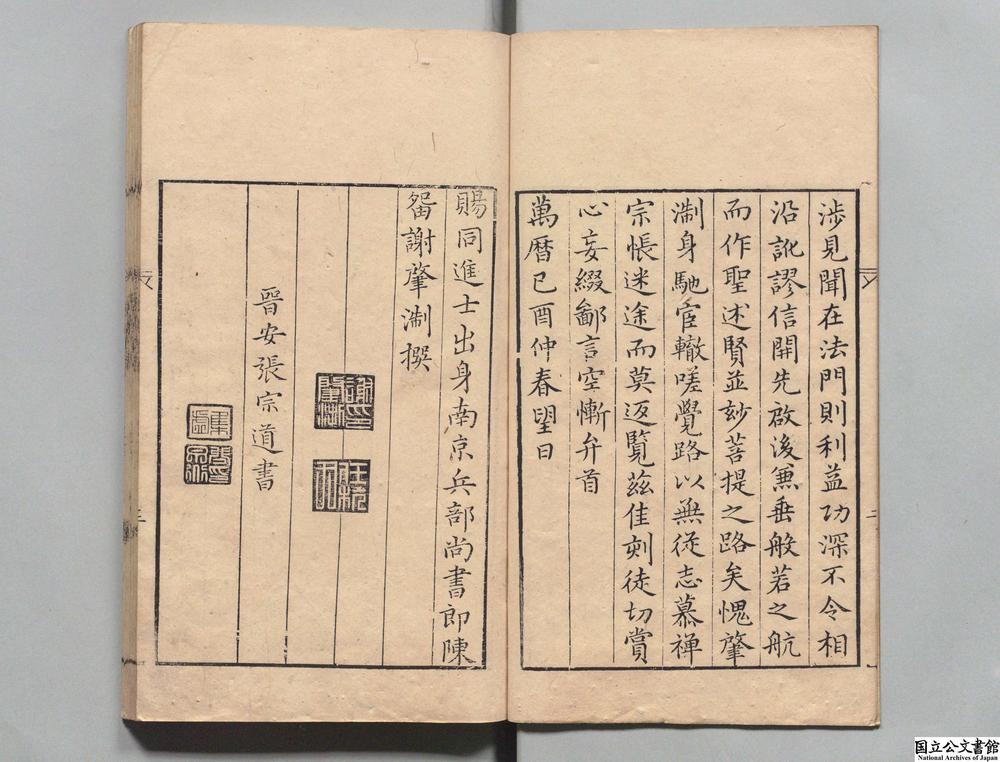 渉見聞在法門則利益功深不令相
沿訛謬信開先啟後兼垂般若之航
而作聖述賢並玅菩提之路矣愧肇
淛身馳宦轍嗟覺路以無從志慕禅
宗悵迷途而莫返覽茲佳刻徒切賞
心妄綴鄙言空慚弁首
萬曆己酉仲春望日
賜同進士出身南京兵部尚書郎陳
留謝肇淛撰
晉安張宗道書
国立公文書館
National Archives of Japan